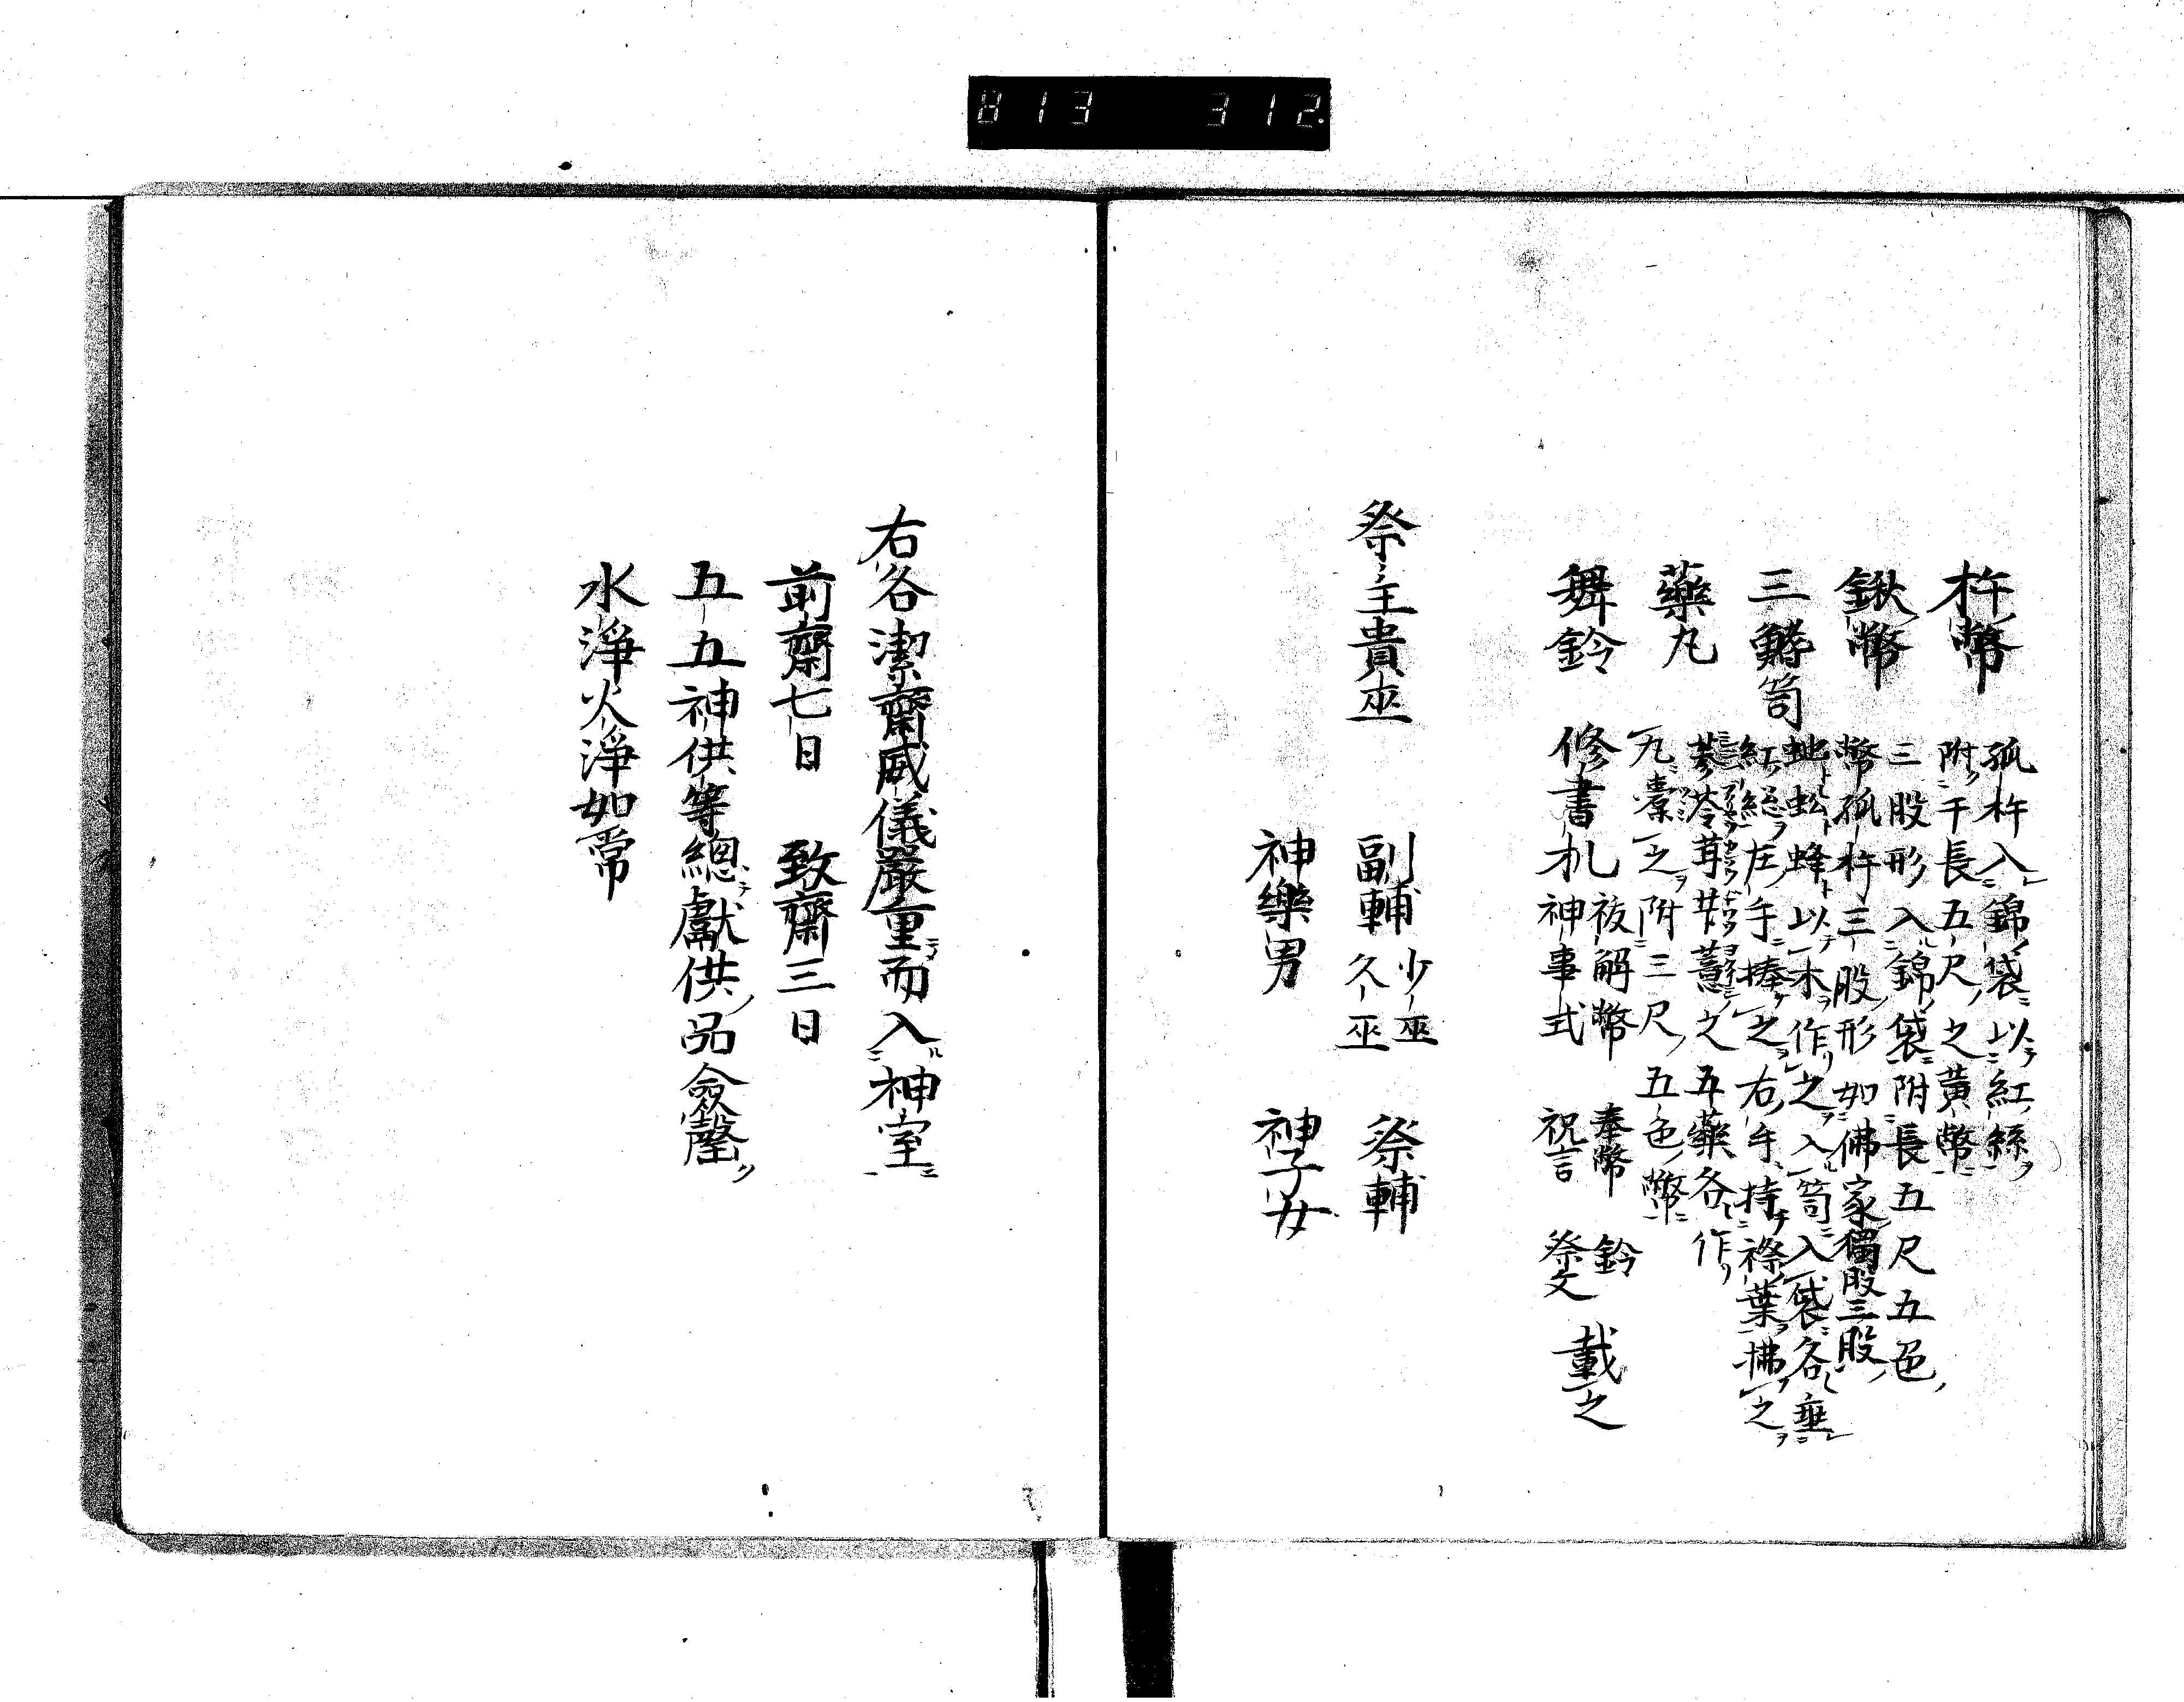 813 312.
杵幣 孤杵入錦袋以紅絲
附干長五尺之黃幣
鍬幣 三股形入錦袋附長五尺五色
幣孤杵三股形如佛家獨股三股
三鰭笥 虵蚣蜂以木作之入笥入袋各垂
紅絕左手捧之右手持祭葉拂之
藥丸 蔘苓茸甘薏之五藥各作
丸橐之附三尺五色幣
舞鈴 修書札 祓解幣 奉幣 鈴
神事式 祝言 祭文 載之
祭主貴巫 副輔 少巫 久巫 祭輔
神樂男 神子女
右各潔齋威儀嚴重而入神室
前齋七日 致齋三日
五五神供等總獻供品僉罄
水淨火淨如常